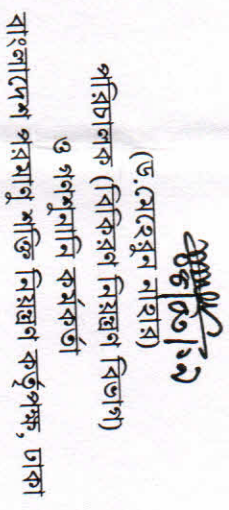 (ড. মেহেবুন নাহার)
পরিচালক (বিকিরণ নিয়ন্ত্রণ বিভাগ)
ও গণশুনানি কর্মকর্তা
বাংলাদেশ পরমাণু শক্তি নিয়ন্ত্রণ কর্তৃপক্ষ, ঢাকা